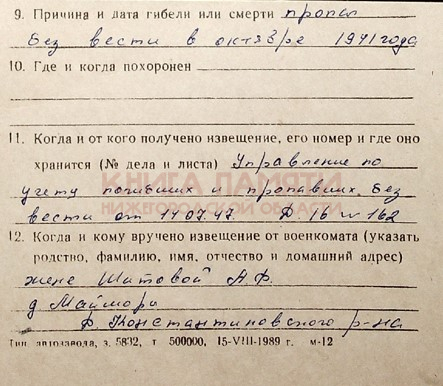 9. Причина и дата гибели или смерти пропал
без вести в октябре 1941 года
10. Где и когда похоронен
11. Когда и от кого получено извещение, его номер и где оно
хранится (№ дела и листа) Управление по
учету погибших и пропавших без
вести от 14 07.47. Д 16 л 162
12. Когда и кому вручено извещение от военкомата (указать
родство, фамилию, имя, отчество и домашний адрес)
жене Шитовой А.Ф.
д Майморы
Д. Константиновского р-на
Тип. автозавода, з. 5832, т 500000, 15-VIII-1989 г. м-12
КНИГА ПАМЯТИ
НИЖЕГОРОДСКОЙ ОБЛАСТИ